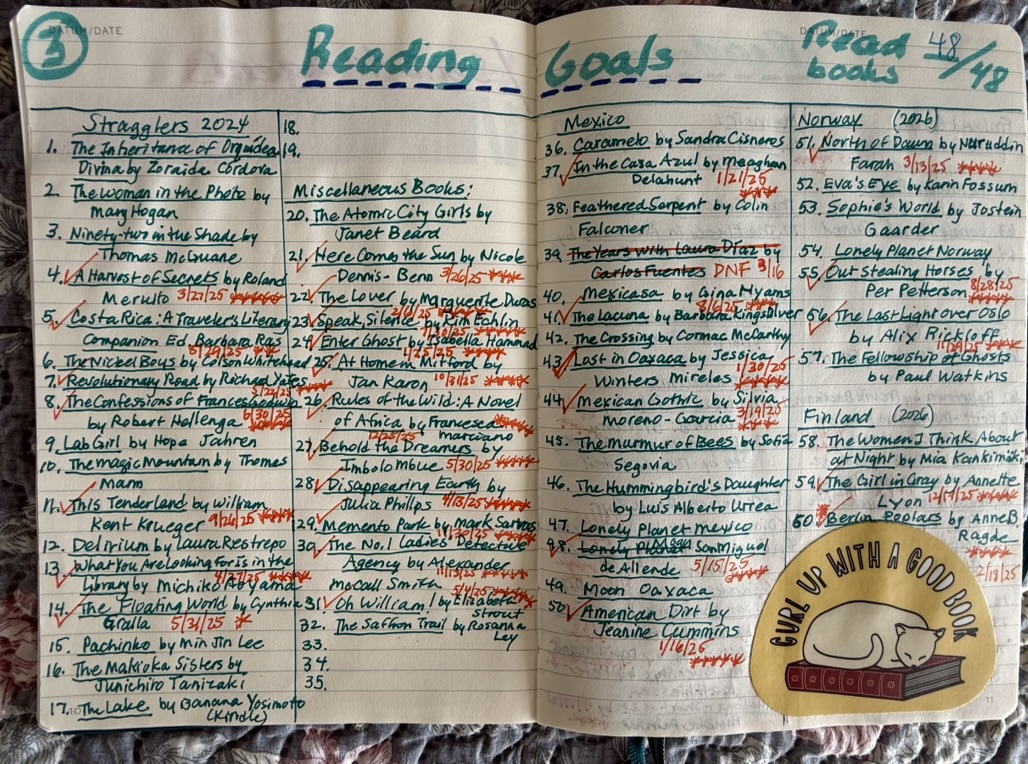 3
DATUM/DATE
Reading Goals
DATUM/DATE
Read 48/48
books
Stragglers 2024
1. The Inheritance of Orquídea
Divina by Zoraida Córdova
2. The Woman in the Photo by
Mary Hogan
3. Ninety-two in the Shade by
Thomas McGuane
4. A Harvest of Secrets by Roland
Merullo 3/27/25 ****
5. Costa Rica: A Traveler's Literary
Companion Ed. Barbara Ras
8/29/25 ****
6. The Nickel Boys by Colson Whitehead
7. Revolutionary Road by Richard Yates
5/22/25 ****
8. The Confessions of Frances Godwin
by Robert Hellenga 6/30/25
****
9. Lab Girl by Hope Jahren
10. The Magic Mountain by Thomas
Mann
11. This Tender Land by William
Kent Krueger 9/26/25 ****
12. Delirium by Laura Restrepo
13. What You Are Looking for is in the
Library by Michiko Aoyama
14. The Floating World by Cynthia
Gralla 5/31/25 *
15. Pachinko by Min Jin Lee
16. The Makioka Sisters by
Junichiro Tanizaki
17. The Lake by Banana Yosimoto
(Kindle)
18.
19.
Miscellaneous Books:
20. The Atomic City Girls by
Janet Beard
21. Here Comes the Sun by Nicole
Dennis-Benn 3/26/25 ****
22. The Lover by Marguerite Duras
23. Speak, Silence by Kim Echlin
24. Enter Ghost by Isabella Hammad
1/25/25 ****
25. At Home in Mitford by
Jan Karon 10/31/25 ****
26. Rules of the Wild: A Novel
of Africa by Francesca
12/25/25 **** Marciano
27. Behold the Dreamers by
Imbolo Mbue 5/30/25 ****
28. Disappearing Earth by
Julia Phillips 4/13/25 ****
29. Memento Park by Mark Sarvas
11/30/25 ****
30. The No. 1 Ladies' Detective
Agency by Alexander
McCall Smith 11/13/25 ****
5/4/25 ****
31. Oh William! by Elizabeth
Strout
32. The Saffron Trail by Rosanna
Ley
33.
34.
35.
Mexico
36. Caramelo by Sandra Cisneros
37. In the Casa Azul by Meaghan
Delahunt 1/21/25
****
38. Feathered Serpent by Colin
Falconer
39. The Years with Laura Díaz by
Carlos Fuentes DNF 3/16
40. Mexicasa by Gina Hyams
8/6/25 ****
41. The Lacuna by Barbara Kingsolver
42. The Crossing by Cormac McCarthy
43. Lost in Oaxaca by Jessica
Winters Mireles 1/30/25
****
44. Mexican Gothic by Silvia
Moreno-Garcia 3/19/25
****
45. The Murmur of Bees by Sofia
Segovia
46. The Hummingbird's Daughter
by Luis Alberto Urrea
47. Lonely Planet Mexico
48. Lonely Planet Moon San Miguel
de Allende 5/15/25
****
49. Moon Oaxaca
50. American Dirt by
Jeanine Cummins
1/16/26
****
Norway (2026)
51. North of Dawn by Nuruddin
Farah 3/13/25 ****
52. Eva's Eye by Karin Fossum
53. Sophie's World by Jostein
Gaarder
54. Lonely Planet Norway
55. Out Stealing Horses by
Per Petterson 8/28/25
****
56. The Last Light over Oslo
by Alix Rickloff
57. The Fellowship of Ghosts
by Paul Watkins
Finland (2026)
58. The Women I Think About
at Night by Mia Kankimäki
59. The Girl in Gray by Annette
Lyon 12/17/25 ****
60. Berlin Poplars by Anne B.
Ragde
****
2/18/25
CURL UP WITH A GOOD BOOK